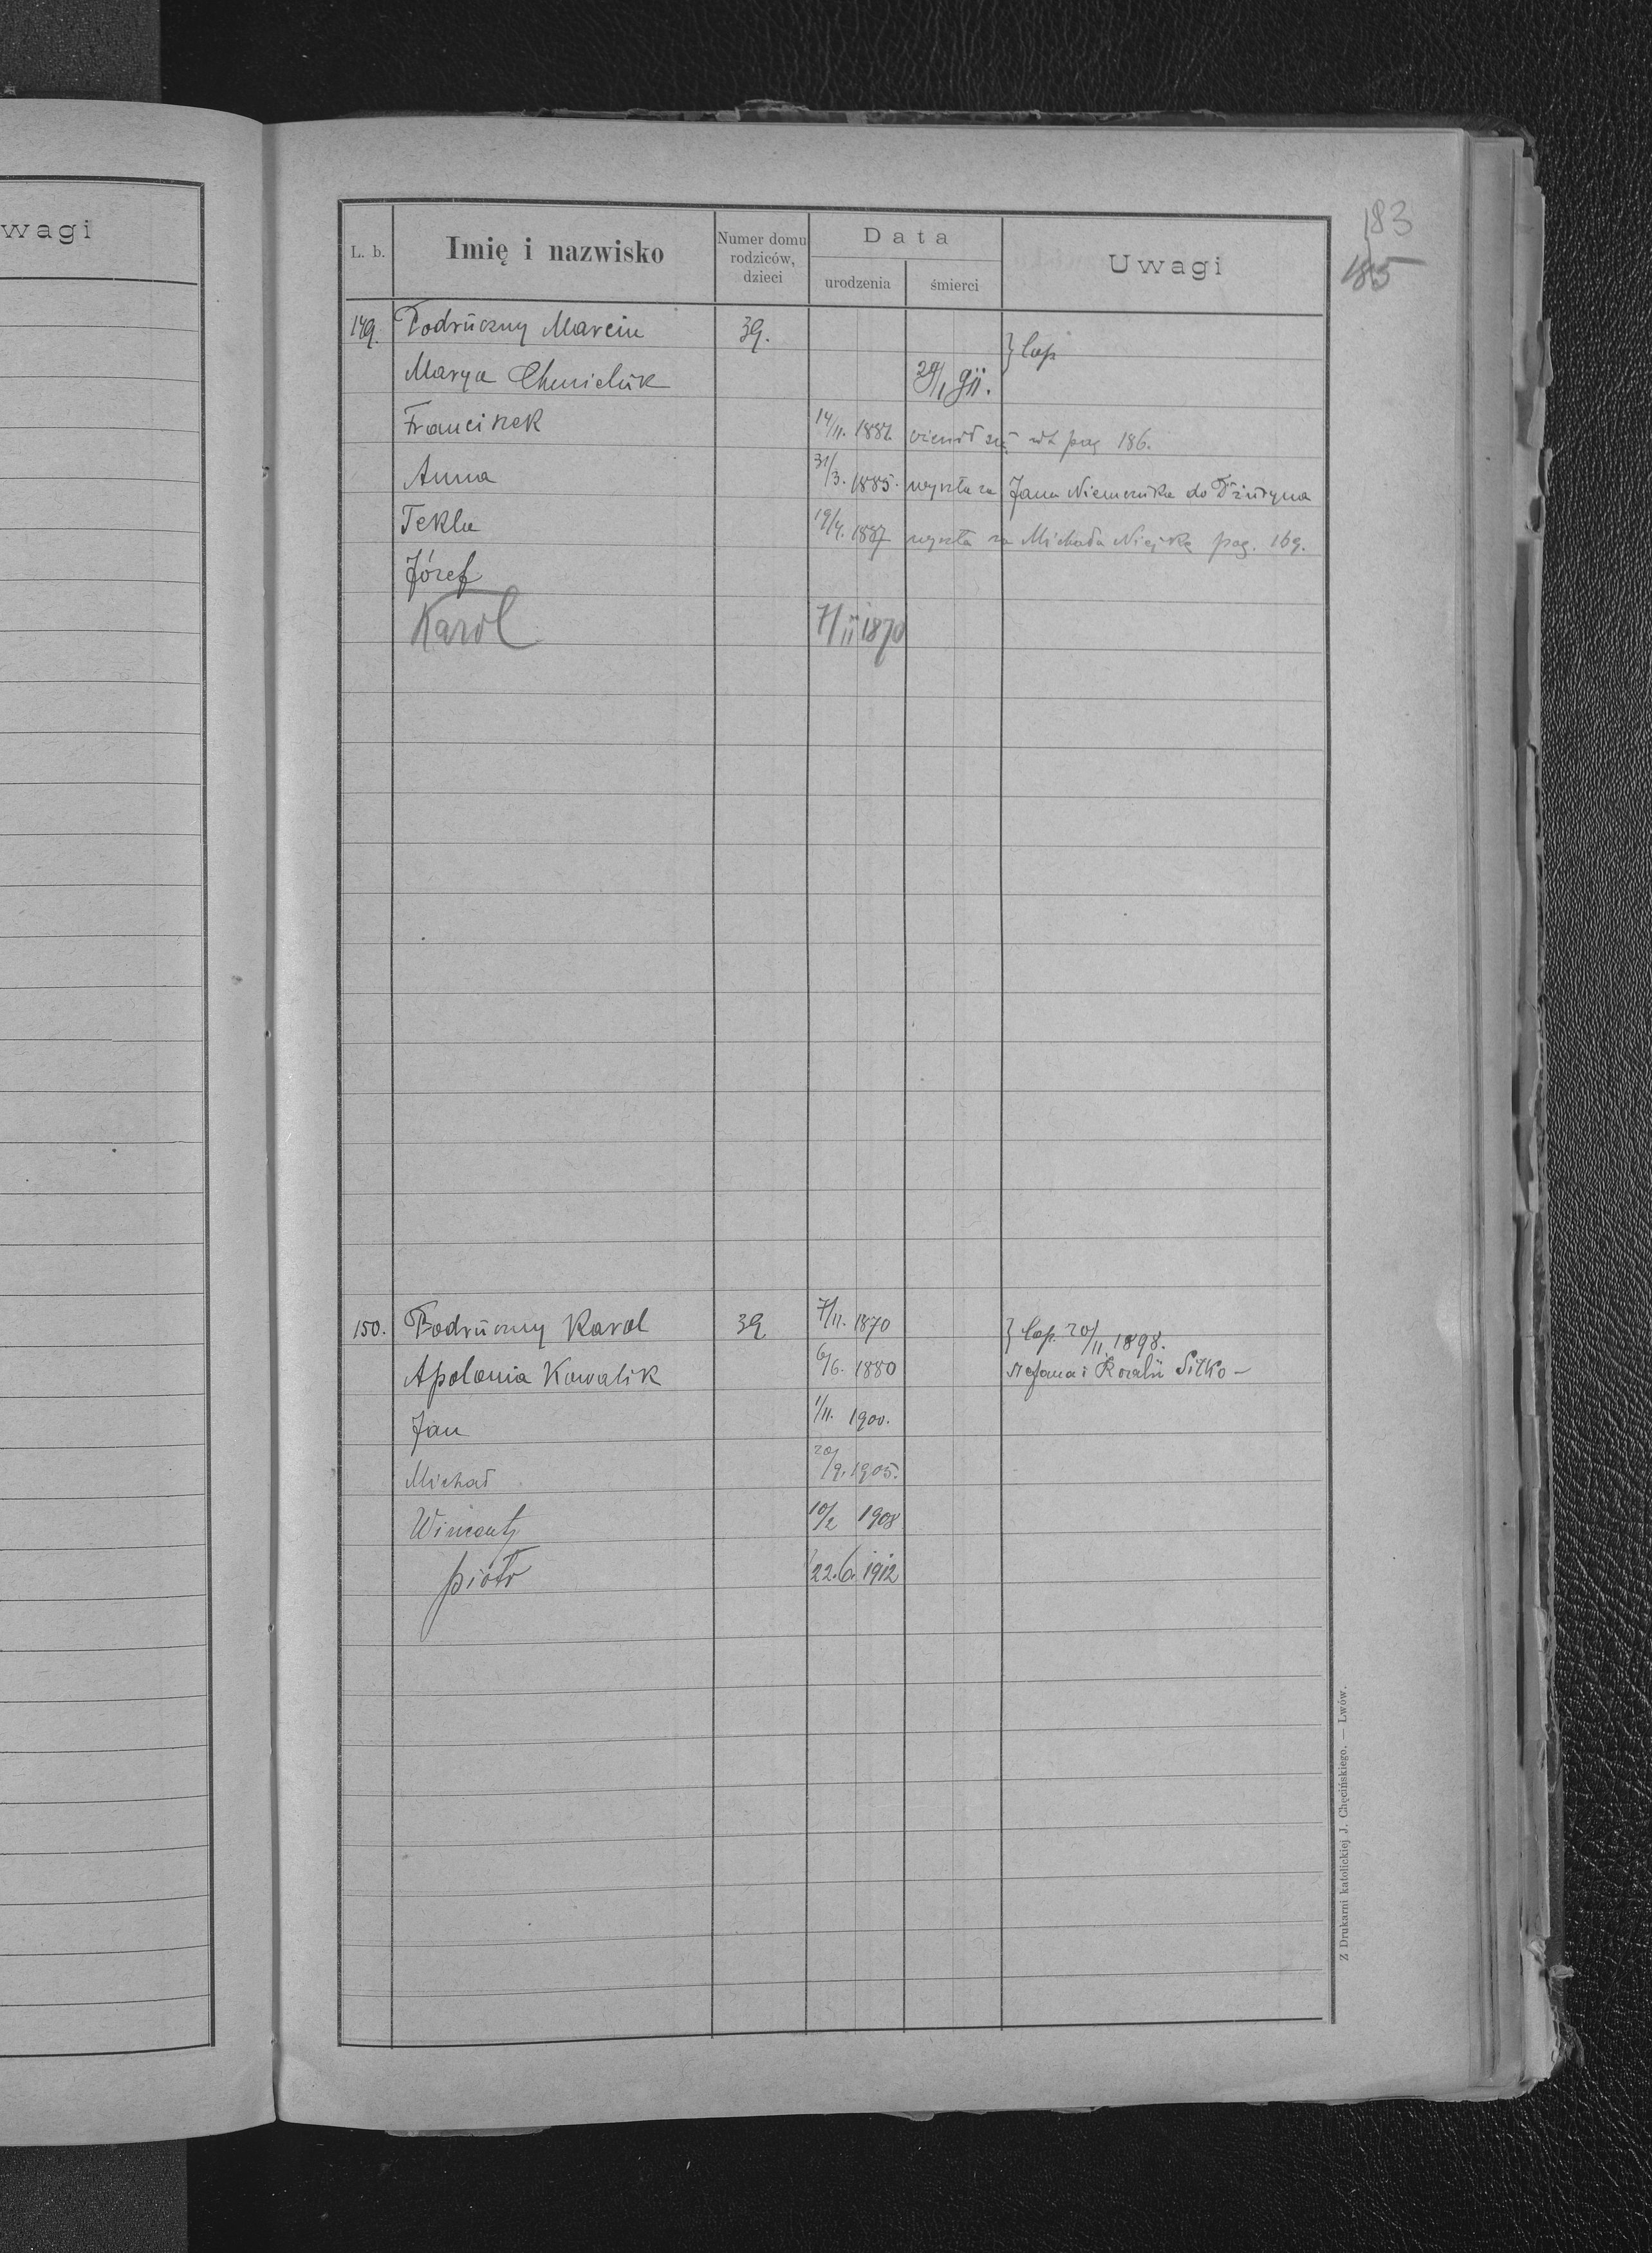 wagi
183
185
L. b. Imię i nazwisko Numer domu rodziców, dzieci Data urodzenia śmierci Uwagi
149. Podrúczny Marcin 39. } Cop
Marya Chmieluk 29/I 911.
Franciszek 14/11. 1882. ożenił się pag 186.
Anna 31/3. 1885. wyszła za Jana Niemczuka do
Tekla 19/4. 1887 wyszła za Michała pag. 169.
Józef
Karol 7/II 1870
150. Podrúczny Karol 39 7/11. 1870 } Cop. 20/II. 1898.
Apolonia Kowalik 6/6. 1880 Stefana i Rozalii Sitko -
Jan 1/11. 1900.
Michał 20/9. 1905.
Wincenty 10/2 1908
Piotr 22. 6. 1912
Z Drukarni katolickiej J. Chęcińskiego. — Lwów.